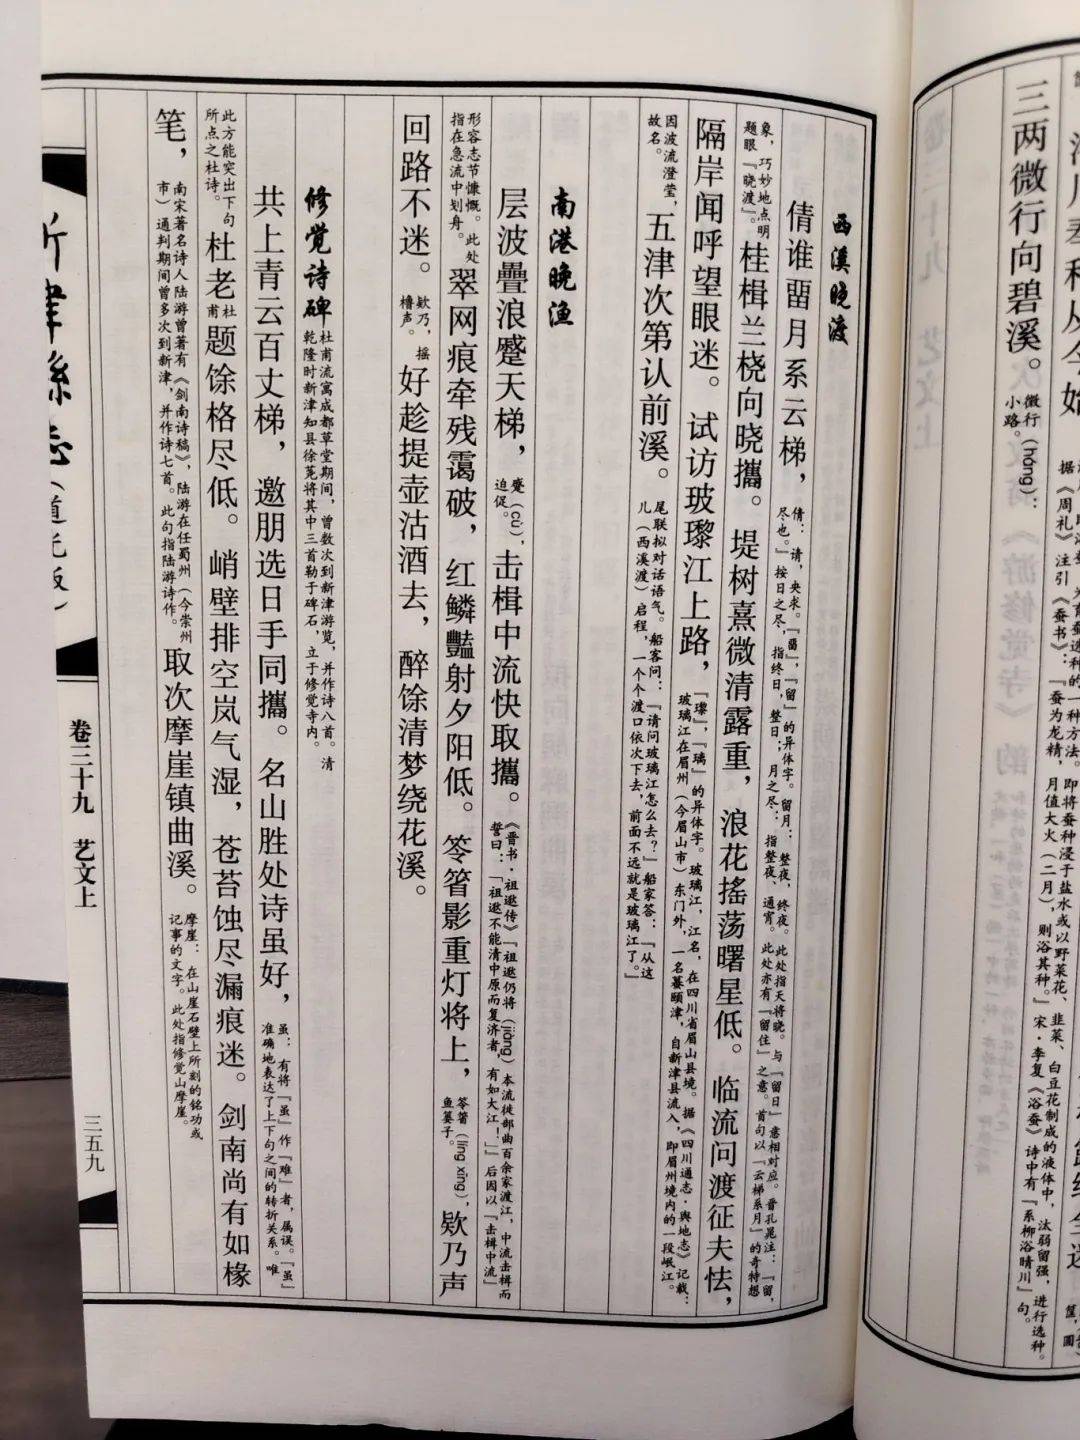 三两微行向碧溪。微行（háng）：
小路。
西溪晓渡
倩谁畱月系云梯，倩：请，央求。「畱」，「留」的异体字。留月：整夜，终夜。此处指天将晓。与「留日」意相对应。晋孔晁注：「留，
尽也。」按日之尽，指终日，整日；月之尽：指整夜、通宵。此处亦有「留住」之意。首句以「云梯系月」的奇特想
象，巧妙地点明
题眼「晓渡」。桂楫兰桡向晓攜。堤树熹微清露重，浪花搖荡曙星低。临流问渡征夫怯，
隔岸闻呼望眼迷。试访玻瓈江上路，「瓈」，「璃」的异体字。玻璃江，江名，在四川省眉山县境。据《四川通志·舆地志》记载：
玻璃江在眉州（今眉山市）东门外，一名蟇颐津，自新津县流入，即眉州境内的一段岷江。
因波流澄莹，
故名。五津次第认前溪。尾联拟对话语气。船客问：「请问玻璃江怎么去？」船家答：「从这
儿（西溪渡）启程，一个个渡口依次下去，前面不远就是玻璃江了。」
南港晚渔
层波疊浪蹙天梯，蹙（cù），
迫促。击楫中流快取攜。《晋书·祖逖传》「祖逖仍将（jiāng）本流徙部曲百余家渡江，中流击楫而
誓曰：「祖逖不能清中原而复济者，有如大江！」」后因以「击楫中流」
形容志节慷慨。此处
指在急流中划舟。翠网痕牵残霭破，红鳞豔射夕阳低。笭箵影重灯将上，笭箵（líng xǐng），
鱼篓子。欸乃声
回路不迷。欸乃，摇
橹声。好趁提壶沽酒去，醉馀清梦绕花溪。
修觉诗碑杜甫流寓成都草堂期间，曾数次到新津游览，并作诗八首。清
乾隆时新津知县徐荛将其中三首勒于碑石，立于修觉寺内。
共上青云百丈梯，邀朋选日手同攜。名山胜处诗虽好，虽：有将「虽」作「难」者，属误。「虽」
准确地表达了上下句之间的转折关系。唯
此方能突出下句
所点之杜诗。杜老杜
甫题馀格尽低。峭壁排空岚气湿，苍苔蚀尽漏痕迷。剑南尚有如椽
笔，南宋著名诗人陆游曾著有《剑南诗稿》，陆游在任蜀州（今崇州
市）通判期间曾多次到新津，并作诗七首。此句指陆游诗作。取次摩崖镇曲溪。摩崖：在山崖石壁上所刻的铭功或
记事的文字。此处指修觉山摩崖。
新津县志（道光版）
卷三十九 艺文上
三五九